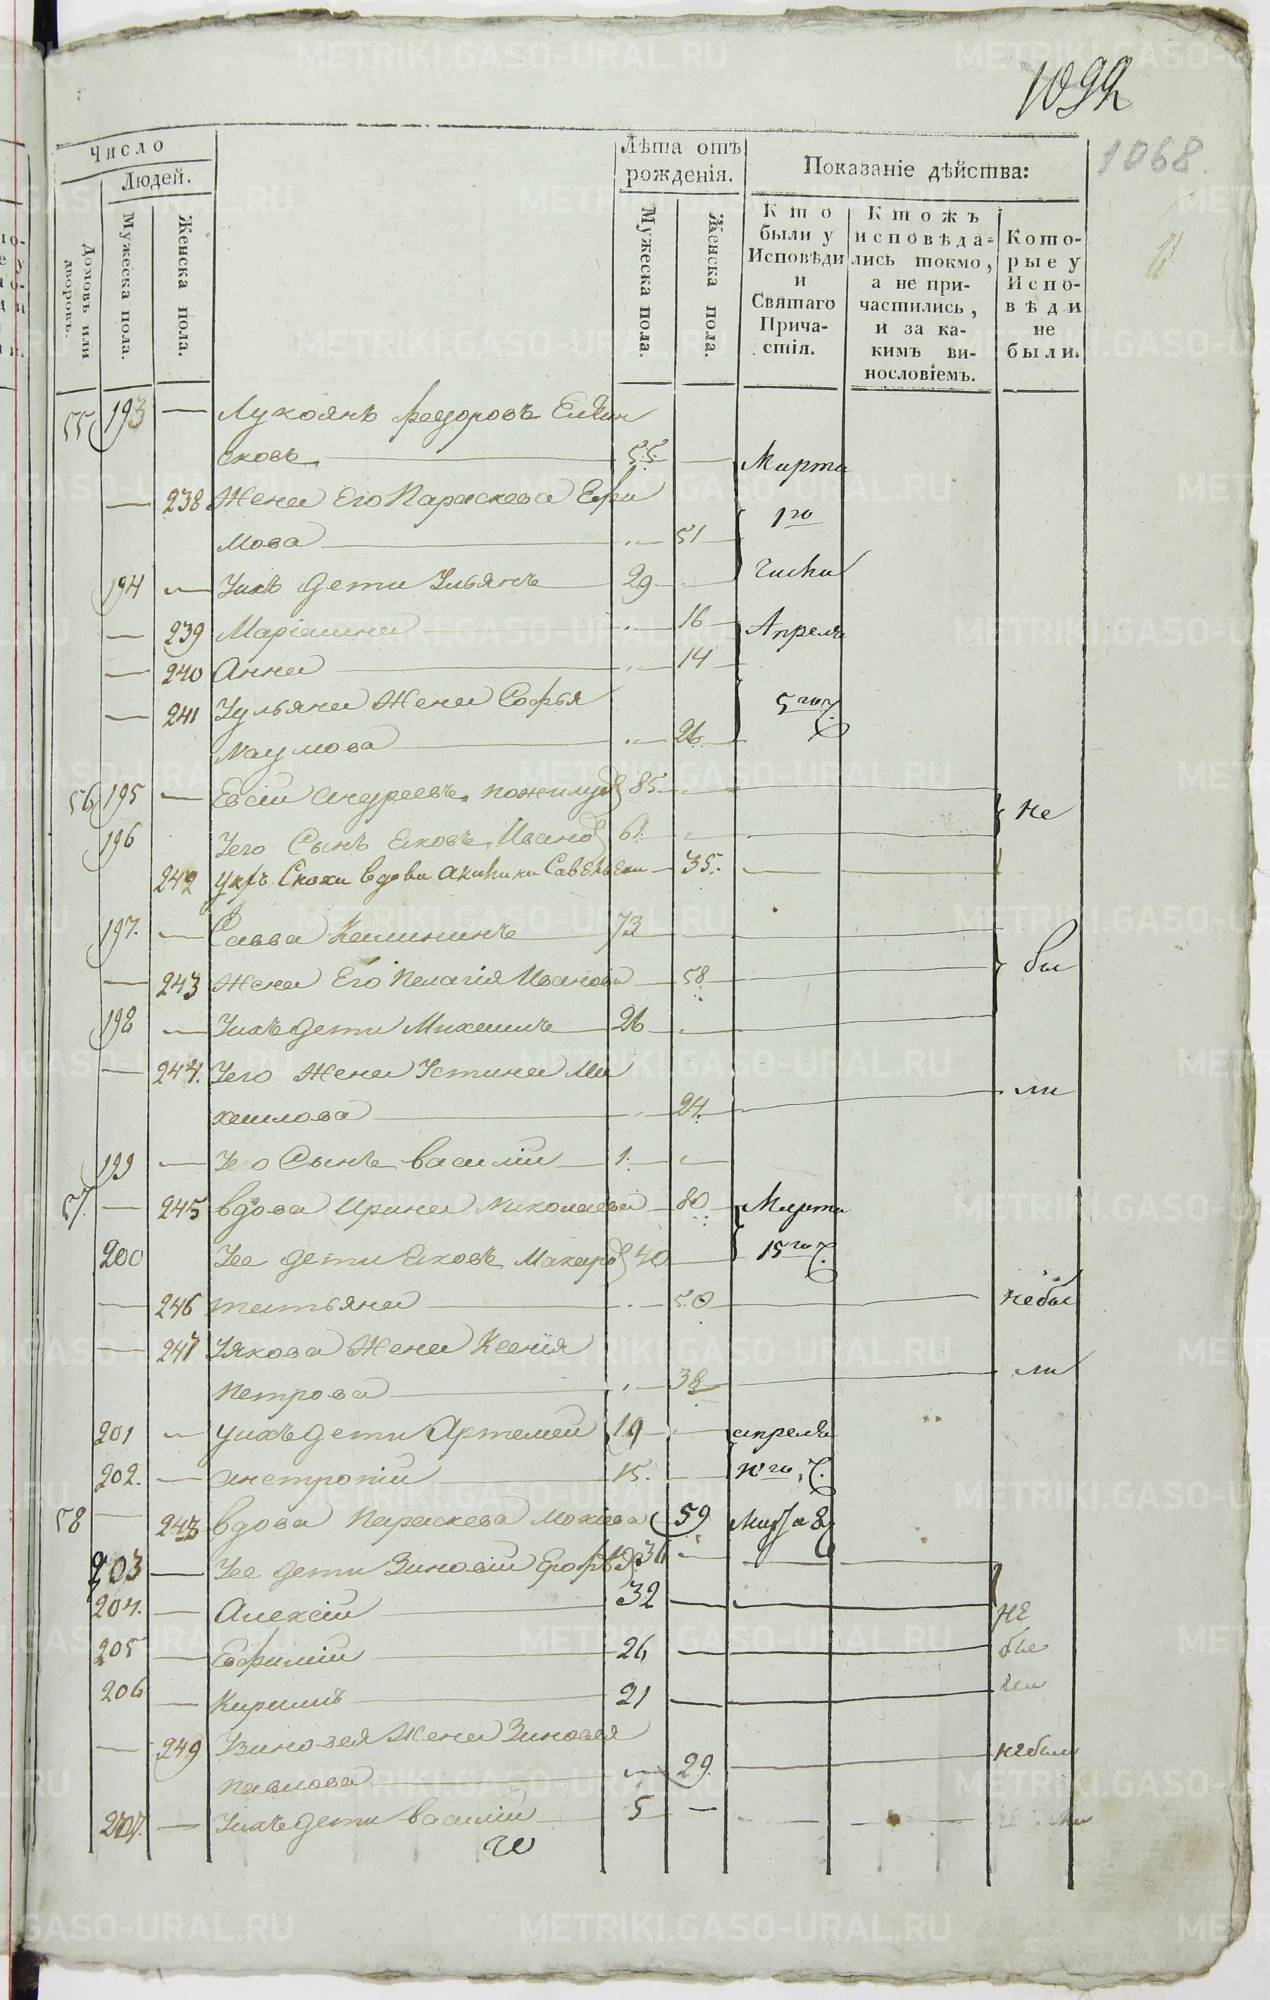 1092
1068.
Число
Людей.
Домовъ или дворовъ.
Мужеска пола.
Женска пола.
Лѣта отъ рожденія.
Мужеска пола.
Женска пола.
Показаніе дѣйства:
Кто были у Исповѣди и Святаго Причастія.
Ктожъ исповѣдались токмо, а не причастились, и за какимъ винословіемъ.
Которые у Исповѣди не были.
55 193 — Лукоянъ федоровъ
сковъ — 55 — Марта
— 238 Жена Его Параскева Ефи
мова — 51 1го
194 — Ихъ дети Ульянъ — 29 — числа
— 239 Маріамна — 16 Апреля
— 240 Анна — 14
— 241 Ульяна Жена Софья 5го ч.
Наумова — 26
56 195 — Евсій андреевъ 85 —
196 Его Сынъ Яковъ 61 — не
242 вдова 35
197. — Савва Калининъ 73
— 243 Жена Его Пелагія Иванова — 58 бы
198 — Ихъ дети Михаилъ — 26 —
— 244. Его Жена Устина Ми
хаилова — 24. ли
199 — Его Сынъ василій — 1. —
57. — 245 вдова Ирина Николаева — 80 Марта
200 Ее дети Яковъ Макаро 40 15го ч.
— 246 татьяна — 50 небы
— 247 Якова Жена Ксенія
Петрова — 38 ли
201 — ихъ дети Артемей 19 — апреля
202. — 15. — 10го ч.
58 — 248 вдова Параскева Мокіева 59 Марта 8
203 — Ее дети Зиновій Егоровъ 36 —
204. — Алексій — 32 — не
205 — Евфимій — 26 — бы
206 — Кирилъ — 21 — ли
— 249 Зиновея Жена Зиновея
Павлова — 29. небыли
207. — Ихъ дети василій — 5 —
METRIKI.GASO-URAL.RU